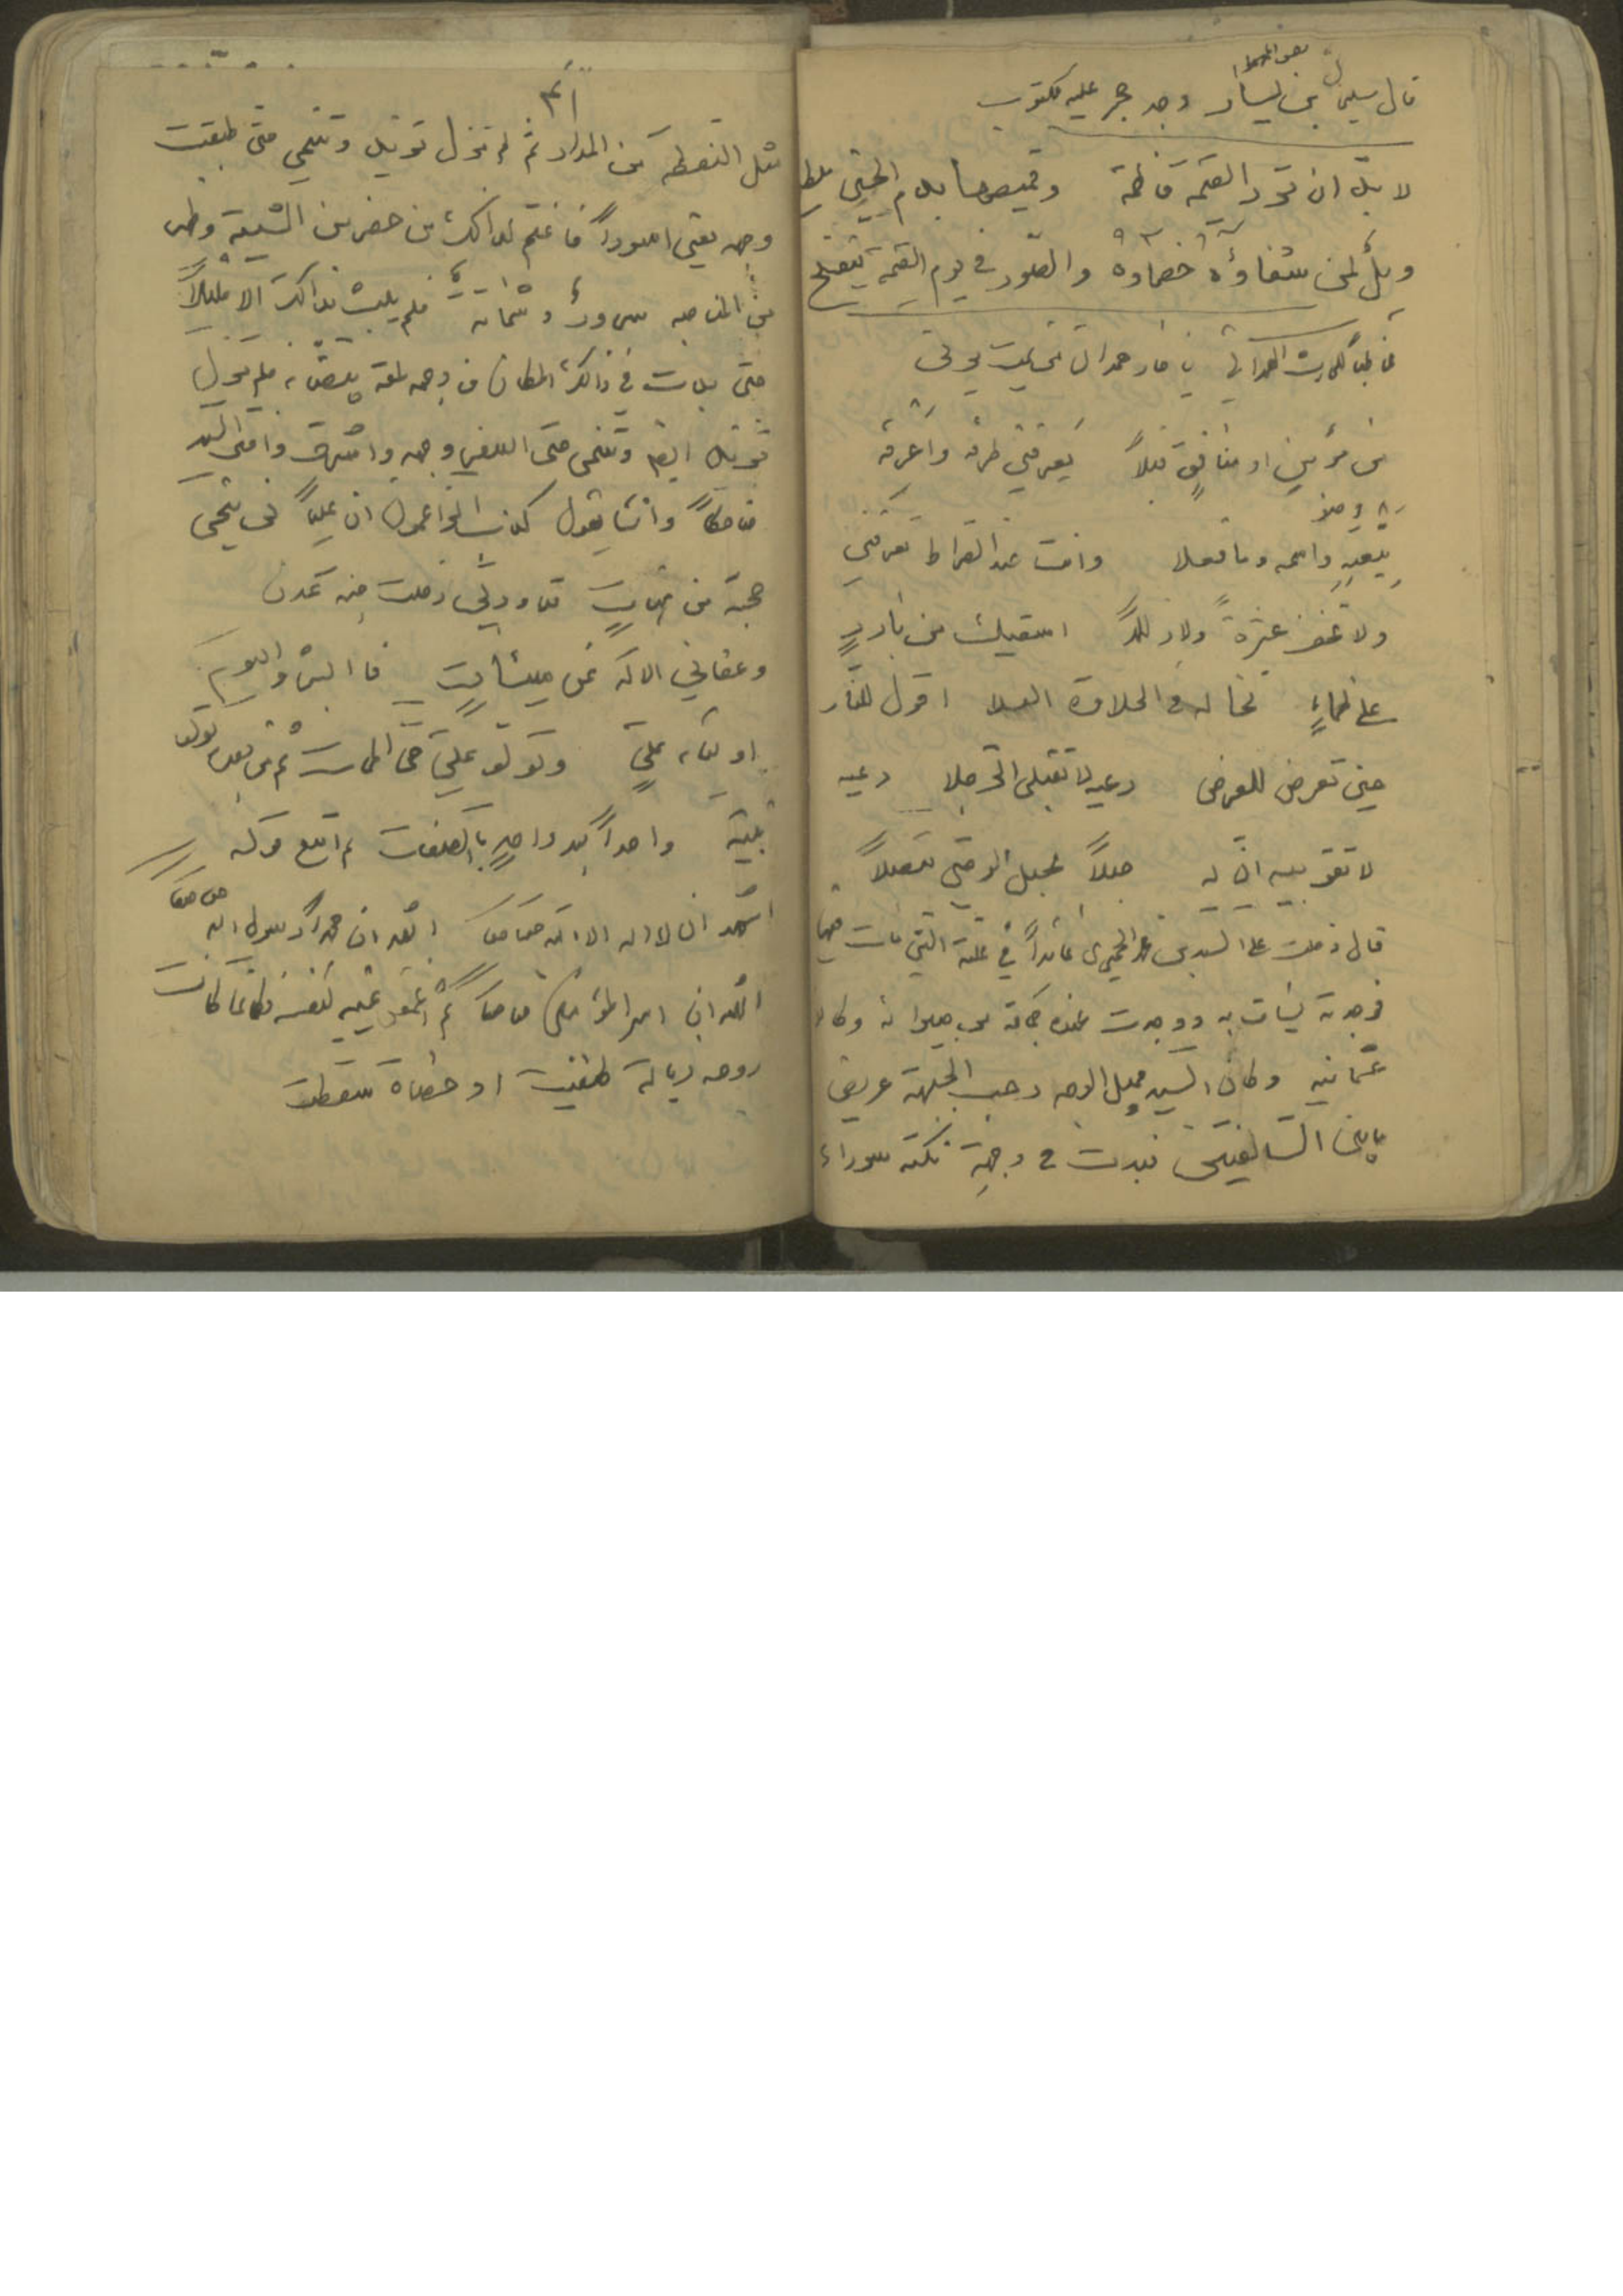 قال سليمن بن يسار وجد حجر عليه مكتوب
لا بدّ ان ترد القيمة فاطمة وقميصها بدم الحسين ملطخ
ويلٌ لمن شفاؤه خصماؤه والصور في يوم القيمة ينفخ
يا حار همدان من يمت يرني
من مؤمنٍ او منافقٍ قبلاً يعرفني طرفه واعرفه
بعينه واسمه وما فعلا وانت عند الصراط تعرفني
ولا تخف عثرةً ولا زللاً اسقيك من باردٍ
على ظماءٍ تخاله في الحلاوة العسلا اقول للنار
حين تعرض للعرض دعيه لا تقبلي الرجلا دعيه
لا تقربيه انّ له حبلاً بحبل الوصي متصلاً
قال دخلت على السيد بن محمد الحميري عائداً في علته التي مات فيها
فوجدته يساق به ووجدت عنده جماعة من جيرانه وكانوا
عثمانيه وكان السيد جميل الوجه رحب الجبهة عريض
ما بين السالفتين فبدت في وجهه نكتة سوداء
مثل النقطه من المداد ثم لم تزل تزيد وتنمي حتى طبقت
وجهه يعني اسوداً فاغتم لذالك من حضر من الشيعة وظهر
من الناصبه سرورٌ وشماتةٌ فلم يلبث بذالك الا قليلاً
حتى بدت في ذالك المكان من وجهه لمعة بيضاء فلم تزل
تزيد ايضا وتنمي حتى اسفر وجهه واشرق وافتر السيد
ضاحكاً وانشا يقول كذب الزاعمون ان علياً لن ينجي
محبه من هناتٍ قد وربي دخلت جنة عدن
وعفاني الاله عن سيئاتٍ فابشروا اليوم
اولياء عليٍ وتولو علي حتى الممات ثم من بعده تولو
بنيه واحداً بعد واحدٍ بالصفات ثم اتبع قوله
اشهد ان لا اله الا الله حقا حقا اشهد ان محمداً رسول الله حقا حقا
اشهد ان امير المؤمنين حقا حقا ثم اغمض عينيه لنفسه فكانما كانت
روحه ذبالة طفيت او حصاة سقطت